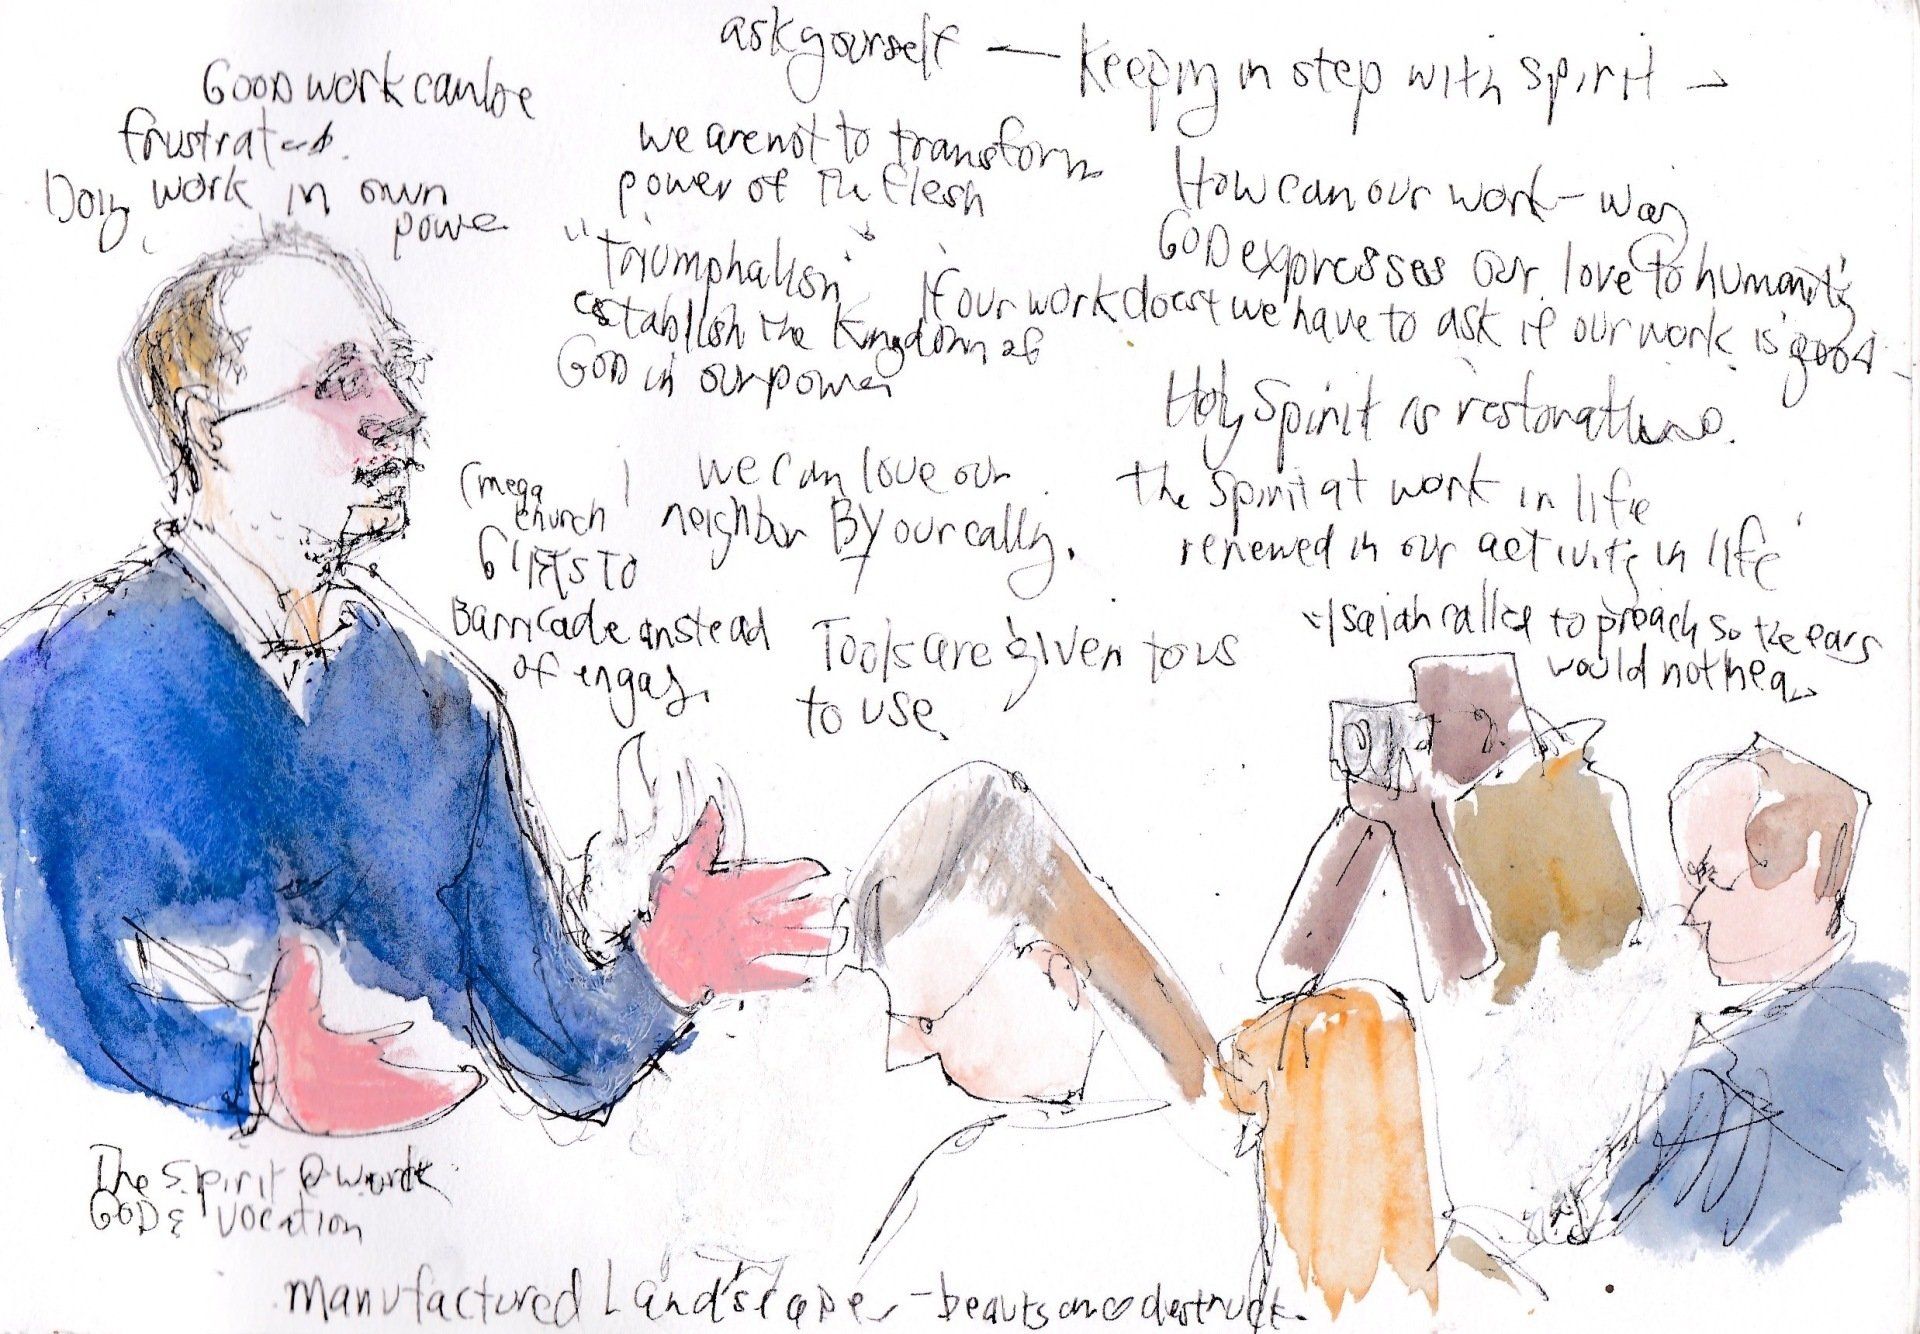 ask yourself — Keeping in step with Spirit →
Good work can be
frustrated.
Doing work in own
power
we are not to transform
power of the flesh
"Triumphalism"
establish the Kingdom of
GOD in our power
How can our work - way
GOD expresses our love to humanity
If our work doesnt we have to ask if our work is good -
Holy Spirit is
the Spirit at work in life
renewed in our activity in life
"Isaiah called to preach so the ears
would not hear
(mega
church
Gifts to
Barricade instead
of engag.
we can love our
neighbor By our calling.
Tools are given to us
to use.
The Spirit @ work
GOD & vocation
manufactured Landscape - beauty and destruct.